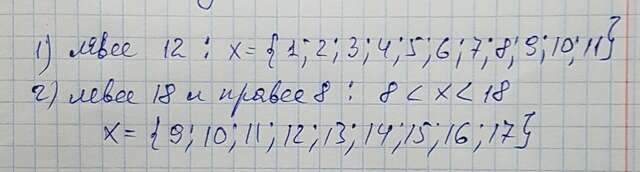 1) левее 12 : x = {1; 2; 3; 4; 5; 6; 7; 8; 9; 10; 11}
2) левее 18 и правее 8 : 8 < x < 18
x = {9; 10; 11; 12; 13; 14; 15; 16; 17}